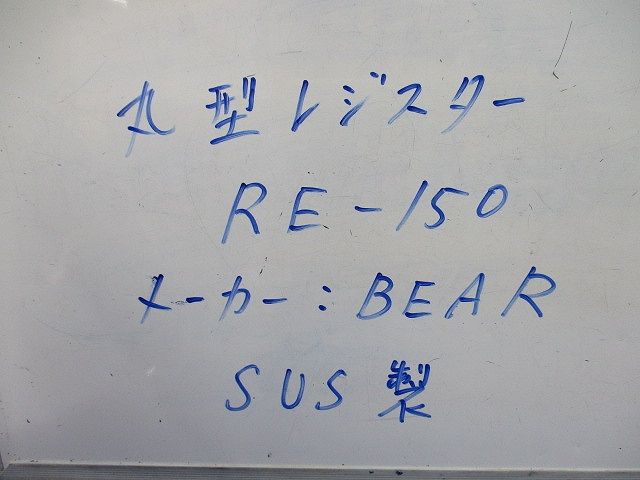 丸型レジスター
RE-150
メーカー:BEAR
SUS製